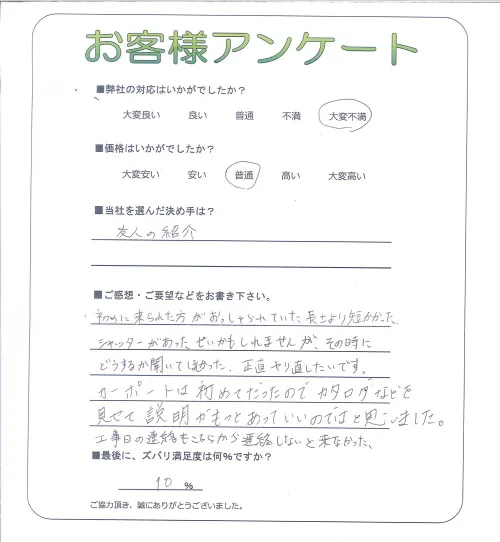 お客様アンケート
■弊社の対応はいかがでしたか?
大変良い 良い 普通 不満 大変不満
■価格はいかがでしたか?
大変安い 安い 普通 高い 大変高い
■当社を選んだ決め手は?
友人の紹介
■ご感想・ご要望などをお書き下さい。
初めに来られた方がおっしゃられていた長さより短かかった、
シャッターがあったせいかもしれませんが、その時に
どうするか聞いてほしかった、正直やり直したいです。
カーポートは初めてだったのでカタログなどを
見せて説明がもっとあっていいのではと思いました。
工事日の連絡もこちらから連絡しないと来なかった、
■最後に、ズバリ満足度は何%ですか?
10 %
ご協力頂き、誠にありがとうございました。